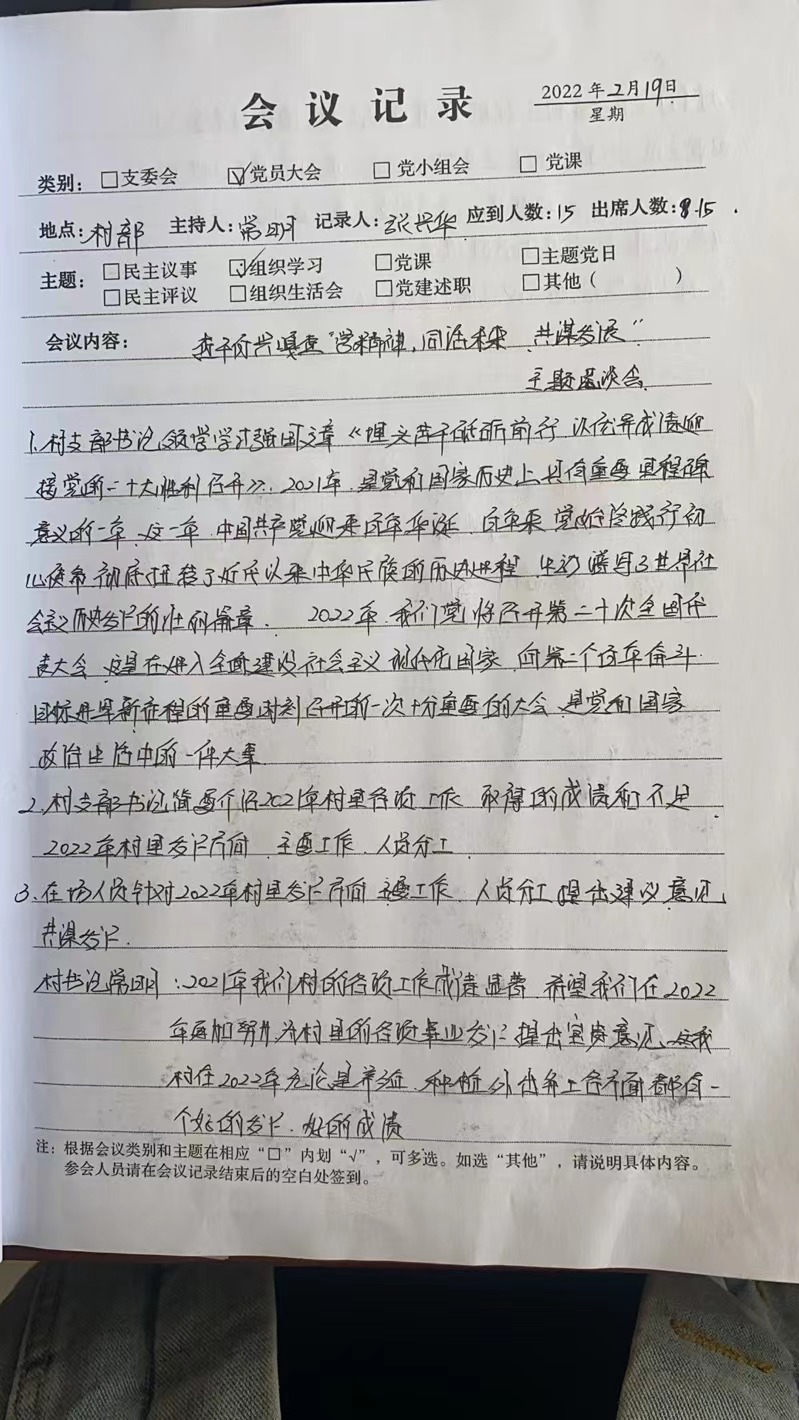 会议记录
2022年2月19日
星期
类别：□支委会 ☑党员大会 □党小组会 □党课
地点：村部 主持人：常明 记录人：张兴华 应到人数：15 出席人数：15.
主题：□民主议事 ☑组织学习 □党课 □主题党日
□民主评议 □组织生活会 □党建述职 □其他（ ）
会议内容： "学精神，同话未来，共谋发展"
主题座谈会
1.村支部书记领学学习强国文章《埋头苦干砥砺前行 以优异成绩迎
接党的二十大胜利召开》。2021年，是党和国家历史上具有重要里程碑
意义的一年。这一年，中国共产党迎来百年华诞，百年来党始终践行初
心使命，彻底扭转了近代以来中华民族的历史进程，生动谱写了世界社
会主义历史发展的壮丽篇章。 2022年，我们党将召开第二十次全国代
表大会，这是在进入全面建设社会主义现代化国家，向第二个百年奋斗
目标进军新征程的重要时刻召开的一次十分重要的大会，是党和国家
政治生活中的一件大事
2.村支部书记简要介绍2021年村里各项工作 取得的成绩和不足
2022年村里发展方向、主要工作、人员分工
3.在场人员针对2022年村里发展方向 主要工作、人员分工提出建议意见，
共谋发展.
村书记常明：2021年我们村的各项工作成绩显著 希望我们在2022
年再加努力 为村里的各项事业发展提出宝贵意见、让我
村在2022年无论是养殖、种植 外出务工各方面都有一
个好的发展、好的成绩
注：根据会议类别和主题在相应"□"内划"√"，可多选。如选"其他"，请说明具体内容。
参会人员请在会议记录结束后的空白处签到。